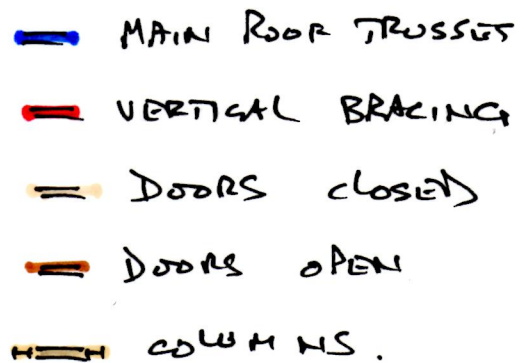 MAIN ROOF TRUSSES
VERTICAL BRACING
DOORS CLOSED
DOORS OPEN
COLUMNS.